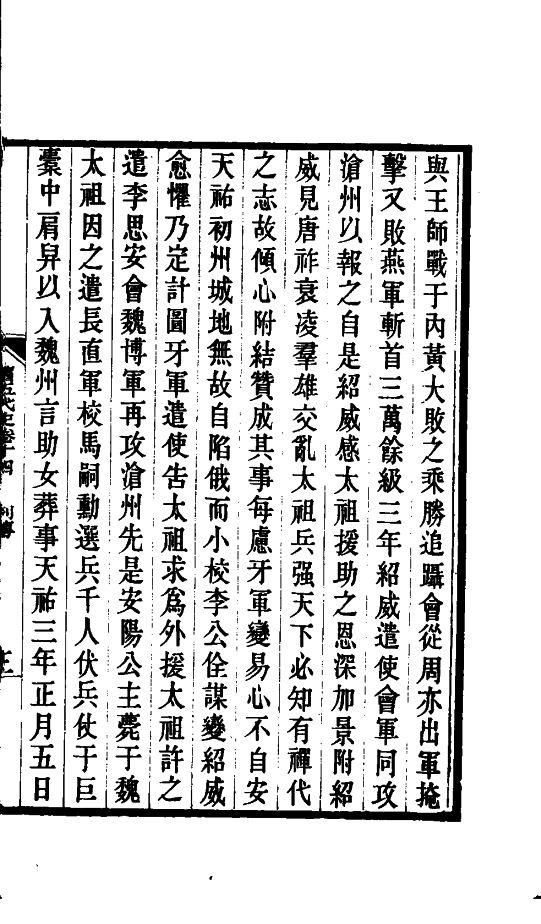 與王師戰于內黃大敗之乘勝追躡會從周亦出軍掩
擊又敗燕軍斬首三萬餘級三年紹威遣使會軍同攻
滄州以報之自是紹威感太祖援助之恩深加景附紹
威見唐祚衰凌羣雄交亂太祖兵强天下必知有禪代
之志故傾心附結贊成其事每慮牙軍變易心不自安
天祐初州城地無故自陷俄而小校李公佺謀變紹威
愈懼乃定計圖牙軍遣使告太祖求爲外援太祖許之
遣李思安會魏博軍再攻滄州先是安陽公主薨于魏
太祖因之遣長直軍校馬嗣勳選兵千人伏兵仗于巨
橐中肩舁以入魏州言助女葬事天祐三年正月五日
五代史卷十四 列傳